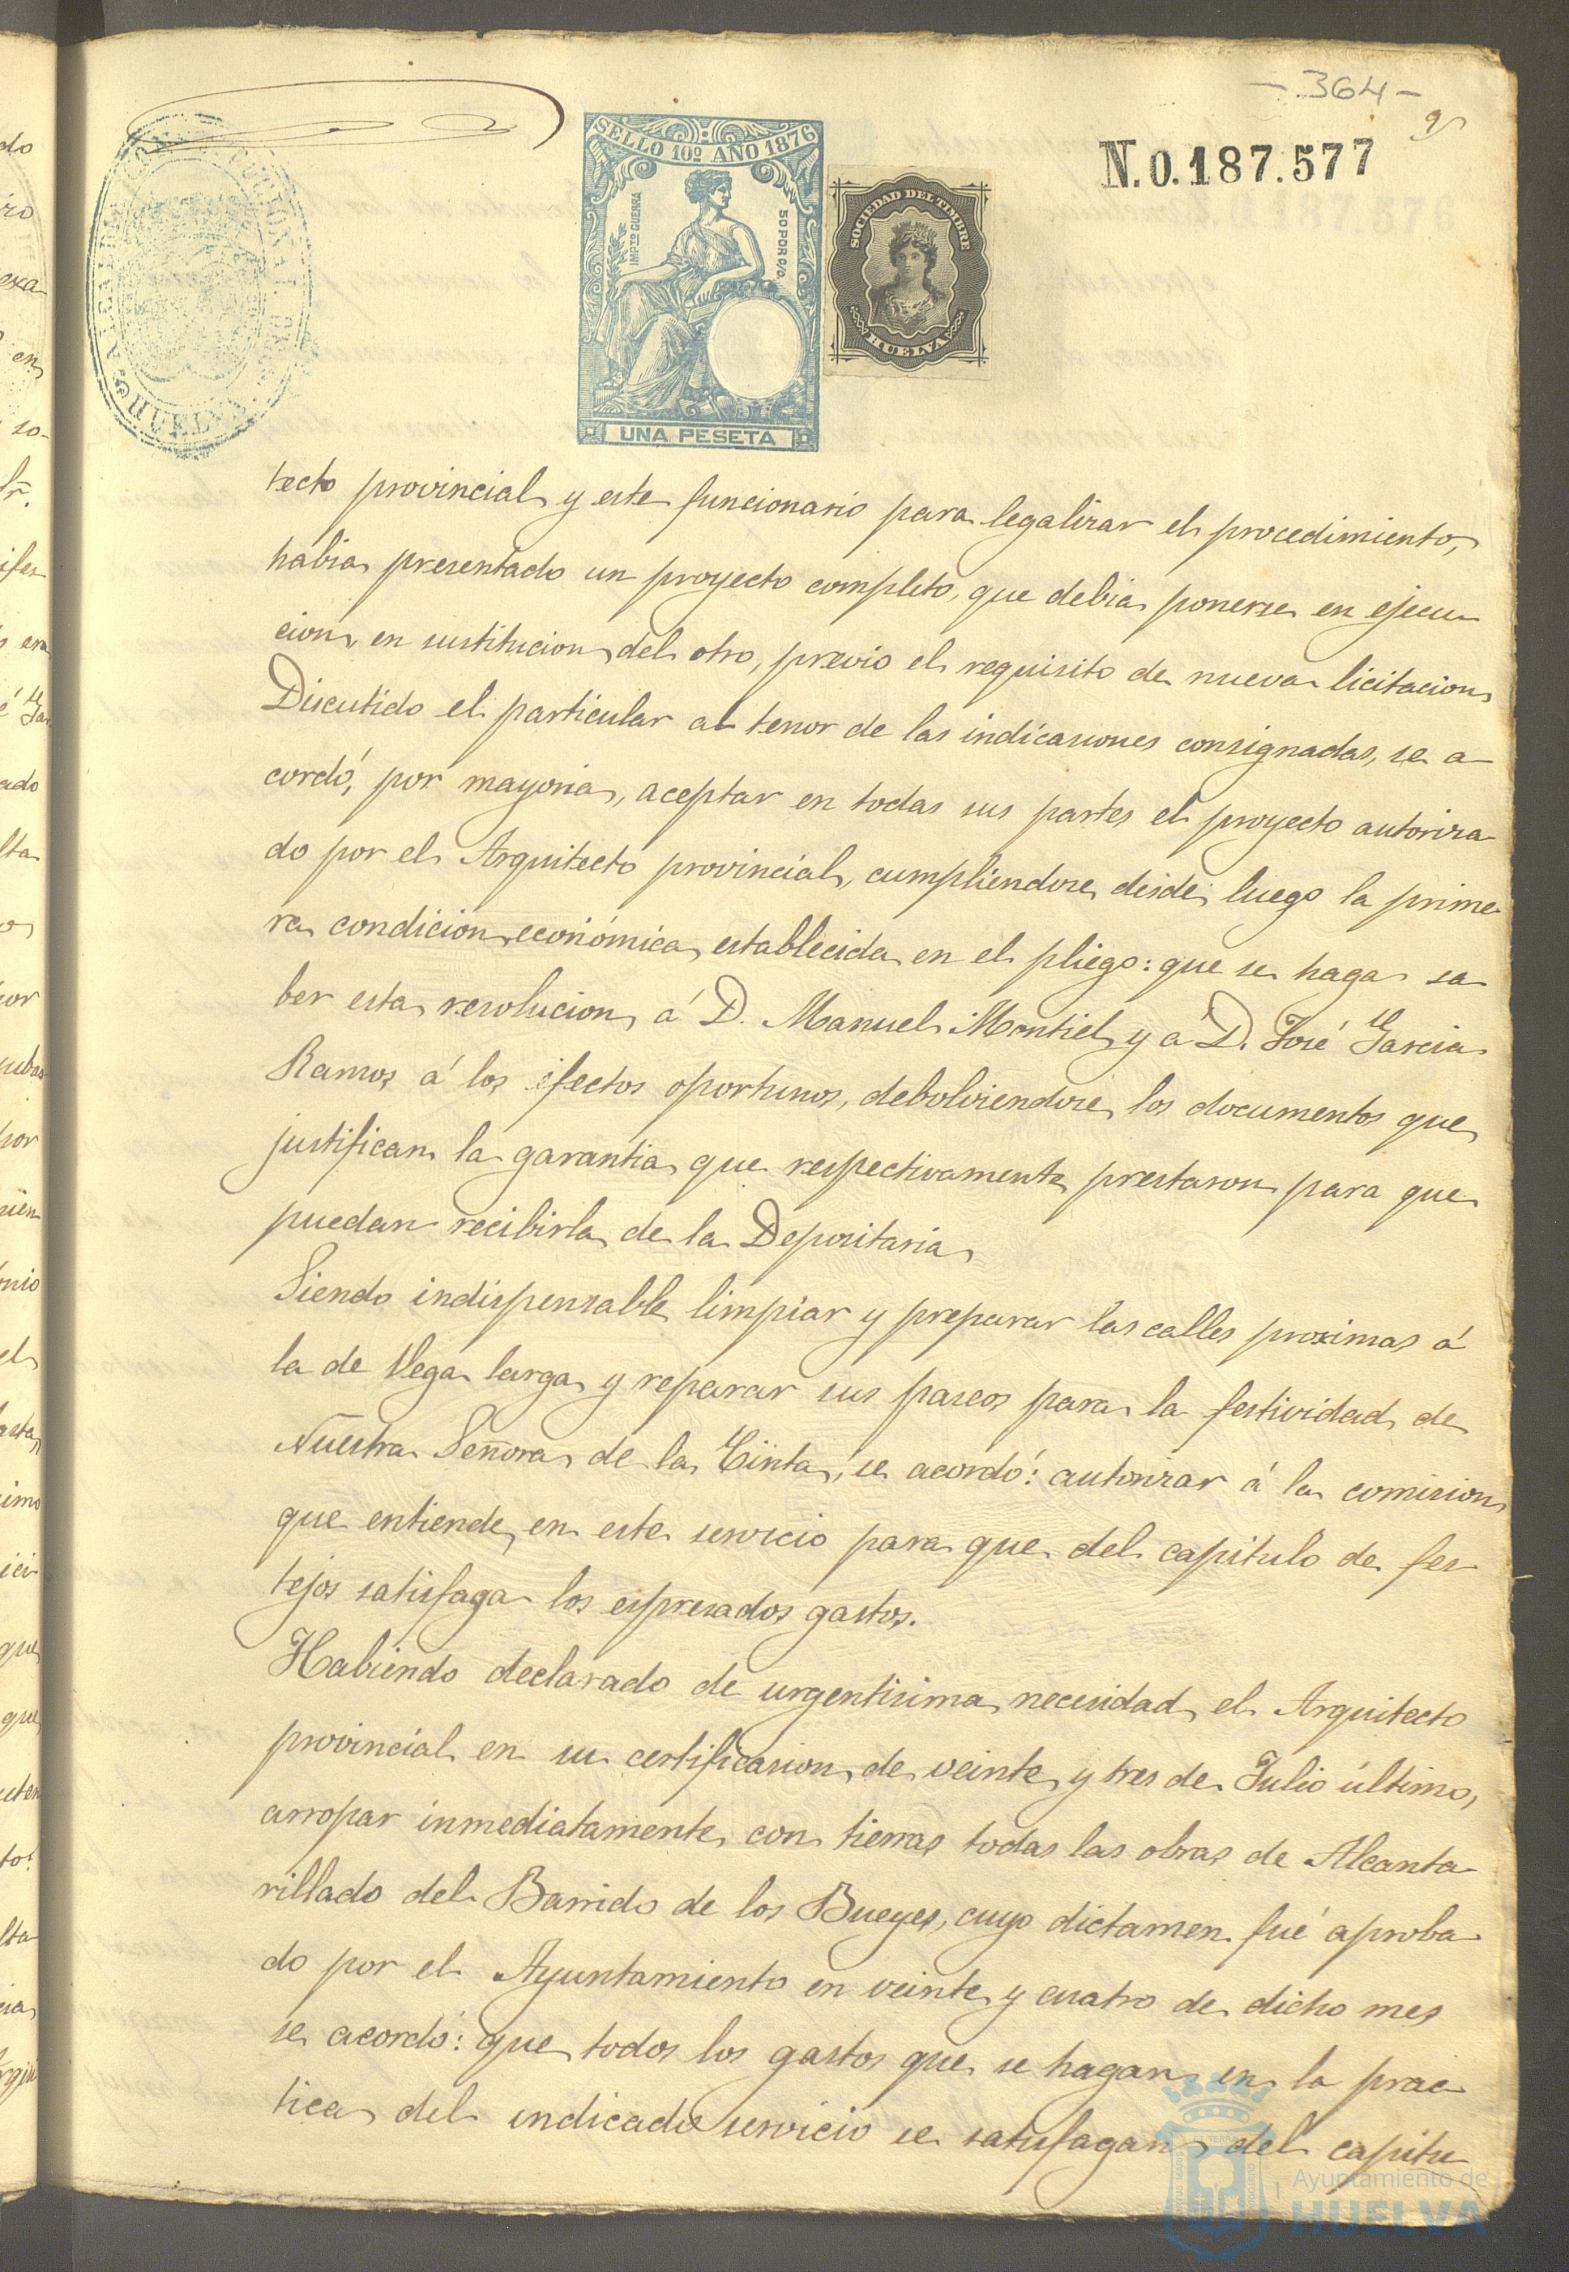 - 364 -
N.0.187.577
SELLO 10º AÑO 1876
IMPTO GUERRA
50 POR 0/0
UNA PESETA
SOCIEDAD DEL TIMBRE
HUELVA
ALCALDIA CONSTITUCIONAL DE
HUELVA
tecto provincial y este funcionario para legalizar el procedimiento,
habia presentado un proyecto completo, que debia ponerse en ejecu
cion, en sustitucion del otro, previo el requisito de nueva licitacion
Discutido el particular al tenor de las indicasiones consignadas, se a-
cordó, por mayoria, aceptar en todas sus partes el proyecto autoriza
do por el Arquitecto provincial, cumpliendose desde luego la prime-
ra condicion económica establecida en el pliego: que se haga sa
ber esta resolucion á D. Manuel Montiel y á D. José Garcia
Ramos á los efectos oportunos, debolviendose los documentos que
justifican la garantia que respectivamente prestaron para que
puedan recibirla de la Depositaria
Siendo indispensable limpiar y preparar las calles proximas á
la de Vega larga y reparar sus paseos para la festividad de
Nuestra Señora de la Cinta, se acordó: autorizar á la comision
que entiende en este servicio para que del capitulo de fes
tejos satisfaga los espresados gastos.
Habiendo declarado de urgentisima necesidad el Arquitecto
provincial en su certificasion de veinte y tres de Julio último,
arropar inmediatamente con tierras todas las obras de Alcanta-
rillado del Barrido de los Bueyes, cuyo dictamen fué aproba-
do por el Ayuntamiento en veinte y cuatro de dicho mes
se acordó: que todos los gastos que se hagan en la prac-
tica del indicado servicio se satisfagan del capitu
Ayuntamiento de
HUELVA